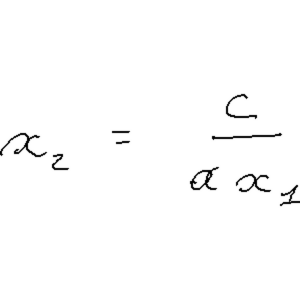 x₂ = c / (a x₁)